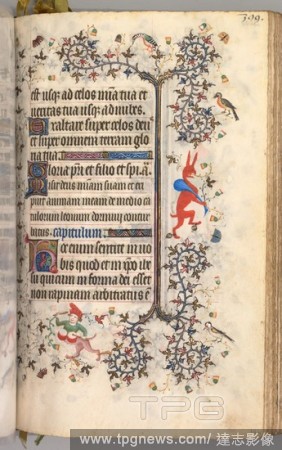 309.
est usq; ad celos mīa tua et
ueritas tua usq; ad nubes.
Exaltare super celos deus
et super omnem terram glo
ria tua.
Gloria pr̄i et filio et sp̄i
misit deus mīam suam et
puit animam meam de medio ca
tulorum leonum dormiui contur
batus. capitulum.
Hoc enim sentite in uo
bis quod et in xp̄o ihe
su qui cum in forma dei esset
non rapinam arbitratus ē
TPG
www.tpgnews.com/達志影像